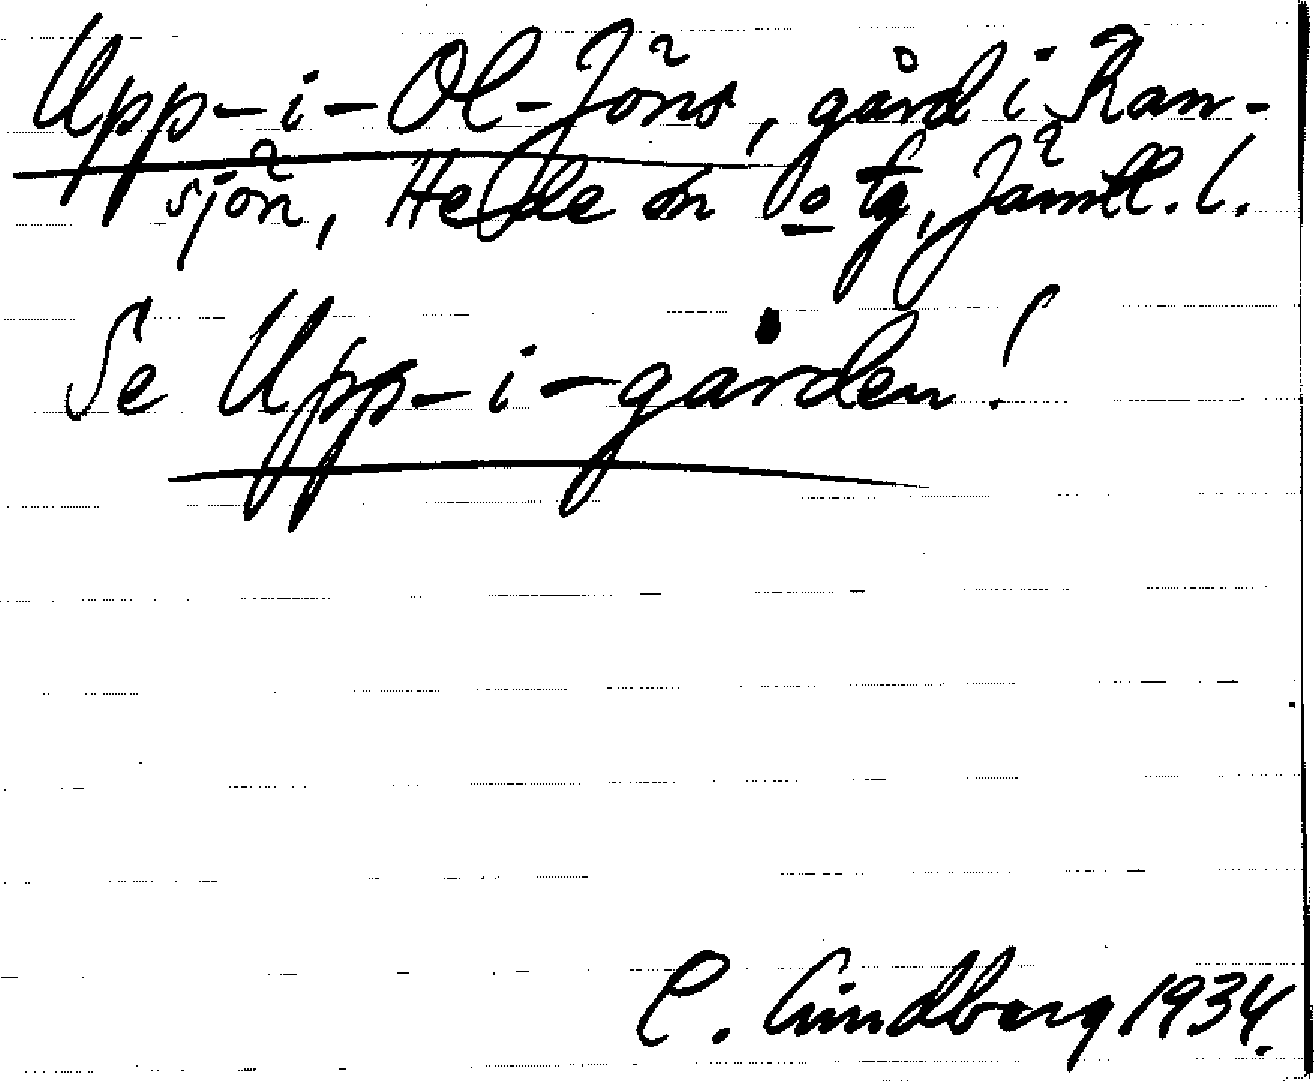 Upp-i-Ol-Jöns, gård i Ran-
sjön, Hede sn o tg, Jämtl. l.
Se Upp-i-gården!
C. Lindberg 1934.